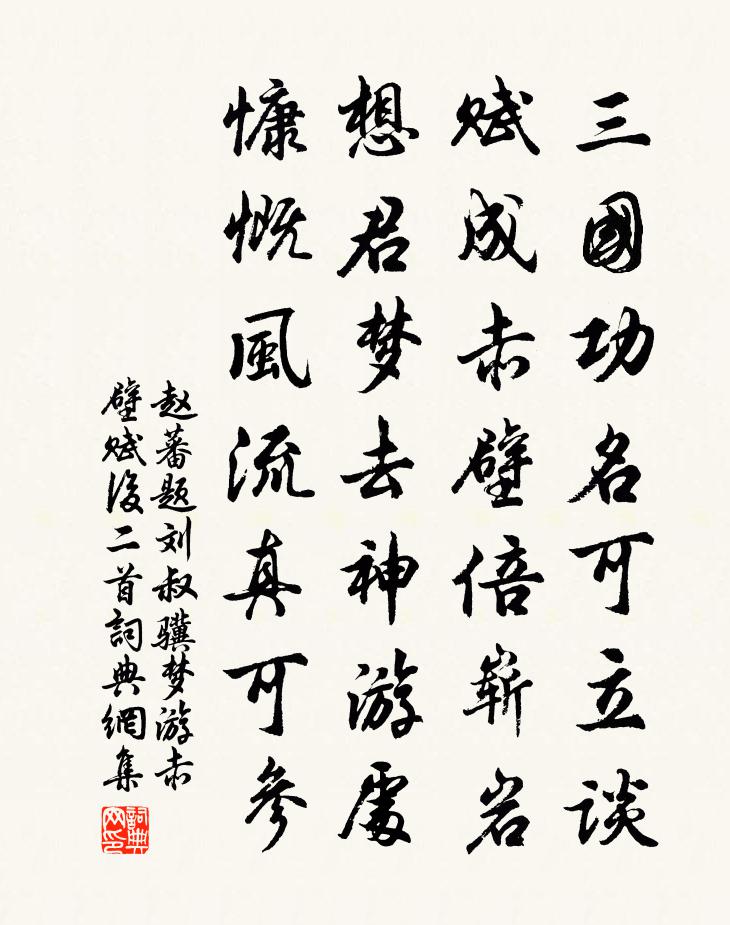 三國功名可立談
赋成赤壁倍嶄岩
想君梦去神游處
慷慨風流真可參
赵蕃题刘叔骥梦游赤
壁赋後二首詞典網集
詞典
网印